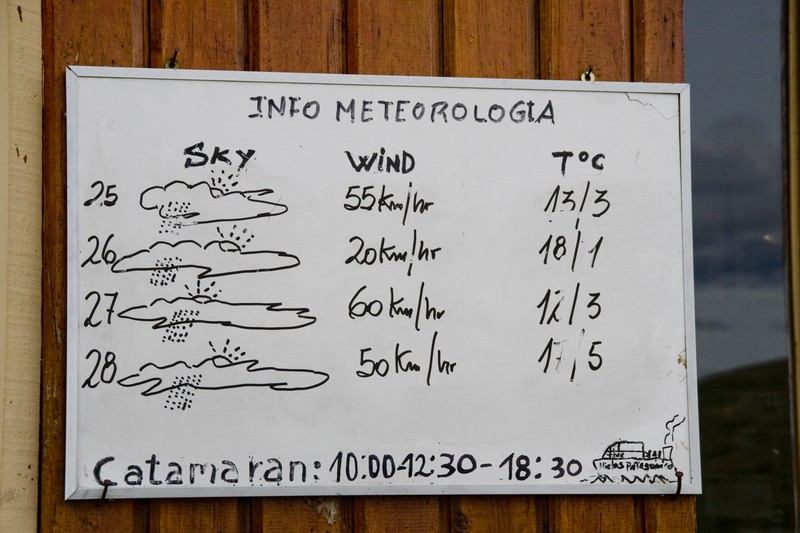 INFO METEOROLOGIA
SKY WIND T°C
25 55Km/hr 13/3
26 20Km/hr 18/1
27 60Km/hr 12/3
28 50Km/hr 17/5
Catamaran: 10:00-12:30-18:30